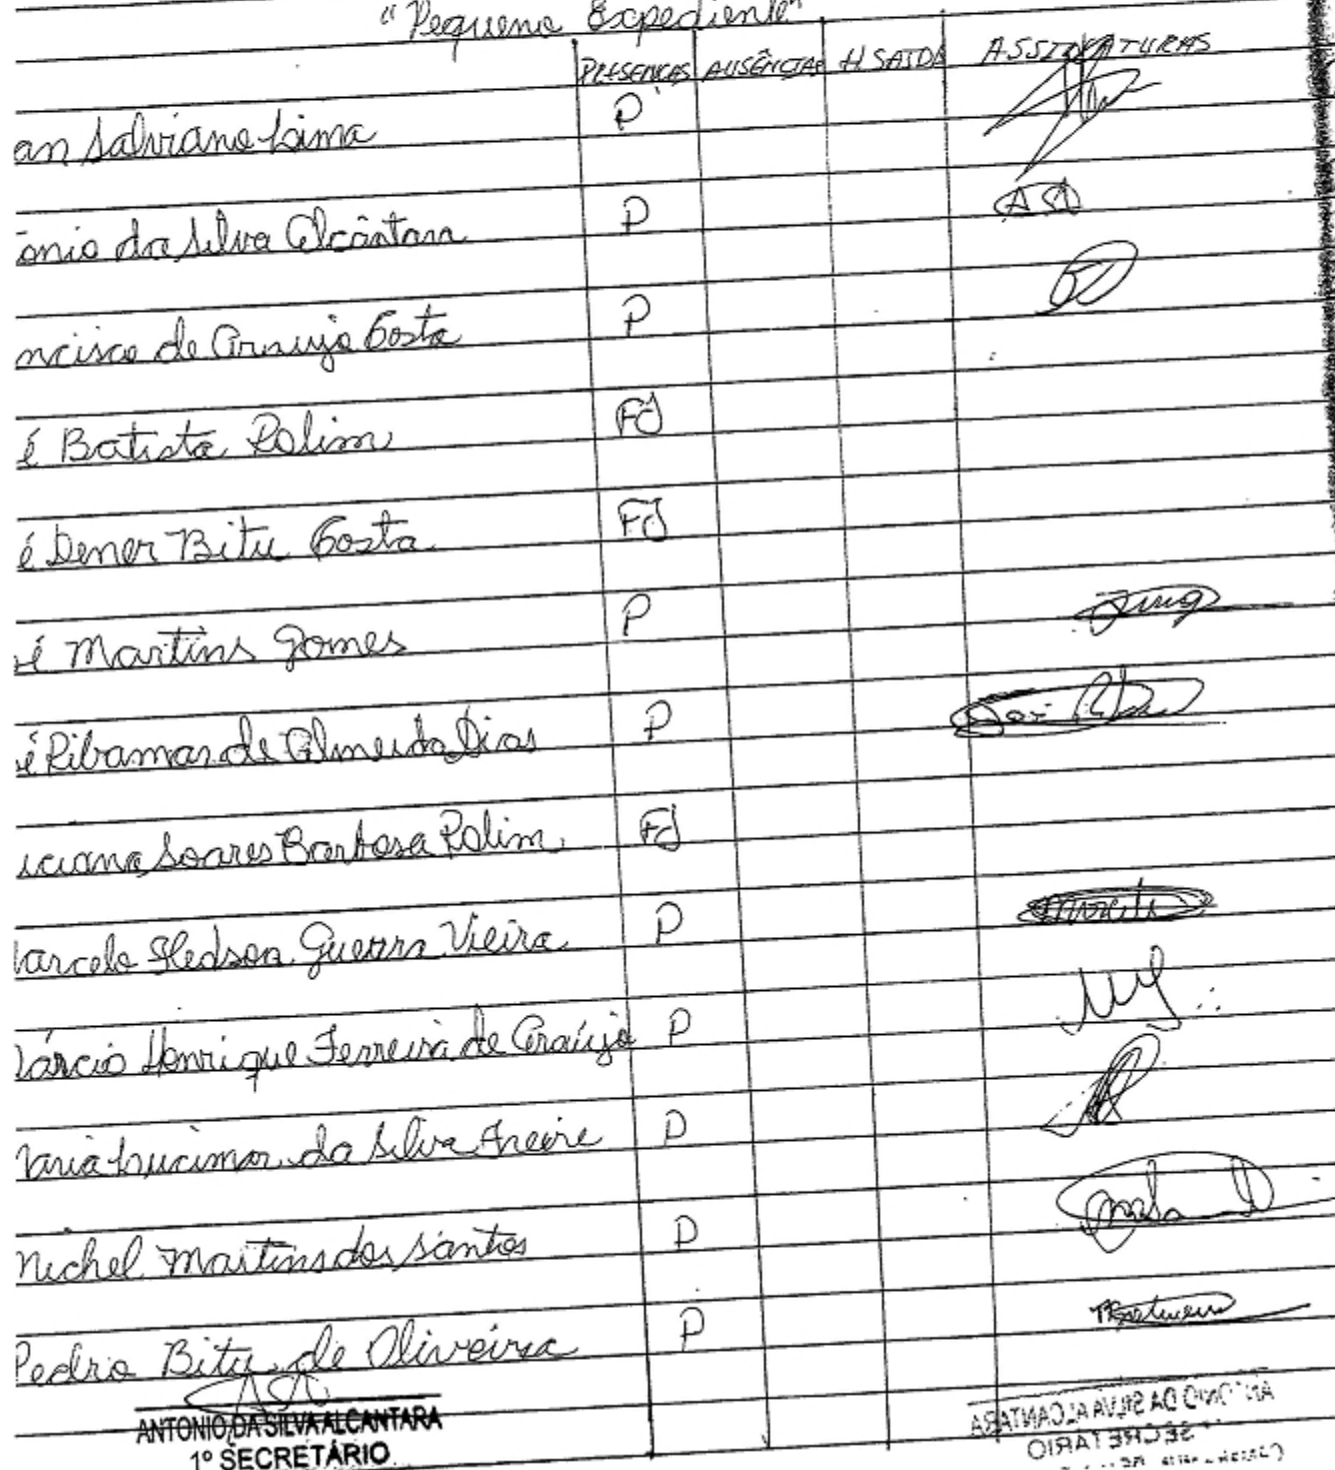 "Pequeno Expediente"
PRESENÇAS AUSÊNCIAS H. SAIDA ASSINATURAS
an Salviano Lima P
ônio da Silva Alcântara P
ncisco de Araujo Costa P
é Batista Rolim FJ
é Dener Bitu Costa FJ
sé Martins Gomes P
sé Ribamar de Almeida Dias P
uciana Soares Barbosa Rolim FJ
Marcelo Hedson Guerra Vieira P
Márcio Henrique Ferreira de Araújo P
Maria Lucimar da Silva Freire P
Michel Martins dos Santos P
Pedro Bitu de Oliveira P
ANTONIO DA SILVA ALCANTARA
1º SECRETÁRIO
ANTONIO DA SILVA ALCANTARA
1º SECRETÁRIO